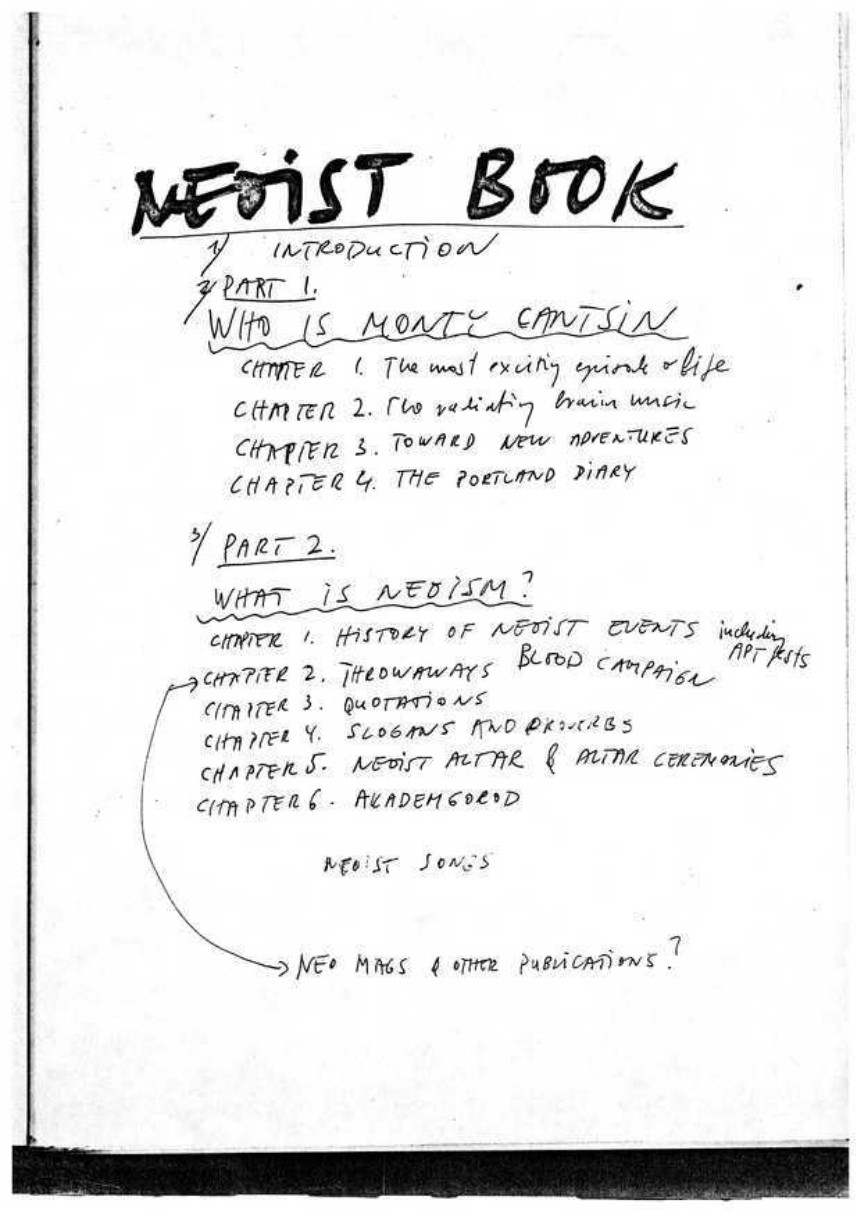 NEOIST BOOK
1/ INTRODUCTION
2/ PART 1.
WHO IS MONTY CANTSIN
CHAPTER 1. The most exciting episode of life
CHAPTER 2. The radiating brain music
CHAPTER 3. TOWARD NEW ADVENTURES
CHAPTER 4. THE PORTLAND DIARY
3/ PART 2.
WHAT IS NEOISM?
CHAPTER 1. HISTORY OF NEOIST EVENTS including APT fests
BLOOD CAMPAIGN
CHAPTER 2. THROWAWAYS
CHAPTER 3. QUOTATIONS
CHAPTER 4. SLOGANS AND PROVERBS
CHAPTER 5. NEOIST ALTAR & ALTAR CEREMONIES
CHAPTER 6. AKADEMGOROD
NEOIST SONGS
NEO MAGS & OTHER PUBLICATIONS?